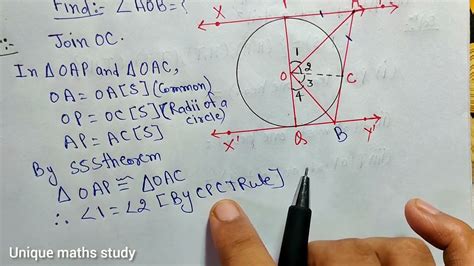 Find:- ∠AOB=?
Join OC.
In △OAP and △OAC,
OA = OA[S] (Common)
OP = OC[S] [Radii of a circle)
AP = AC[S]
By SSS theorem
△OAP ≅ △OAC
∴ ∠1 = ∠2 [By CPCT Rule]
X P A
1
O 2 C
3
4
X' Q B Y'
Unique maths study